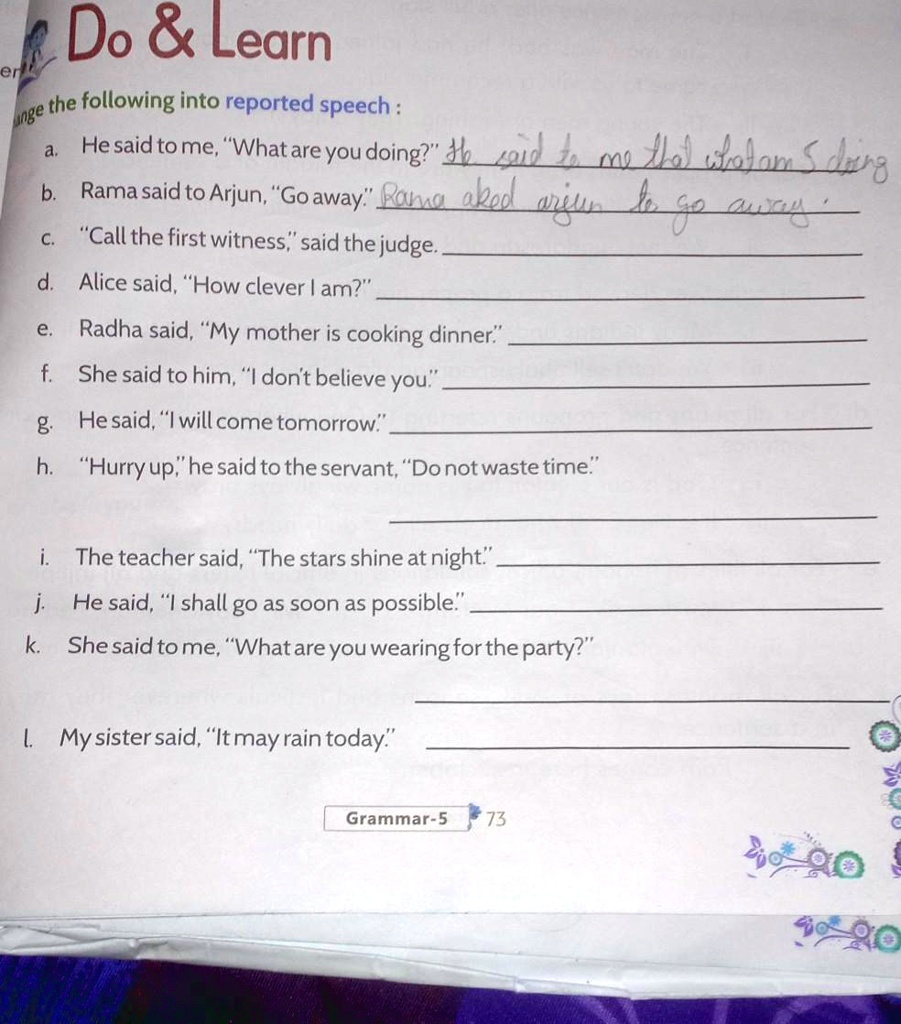 Do & Learn
ange the following into reported speech :
a. He said to me, "What are you doing?" He said to me that what am I doing
b. Rama said to Arjun, "Go away." Rama aked arjun to go away.
c. "Call the first witness," said the judge.
d. Alice said, "How clever I am?"
e. Radha said, "My mother is cooking dinner."
f. She said to him, "I don't believe you."
g. He said, "I will come tomorrow."
h. "Hurry up," he said to the servant, "Do not waste time."
i. The teacher said, "The stars shine at night."
j. He said, "I shall go as soon as possible."
k. She said to me, "What are you wearing for the party?"
l. My sister said, "It may rain today."
Grammar-5 73